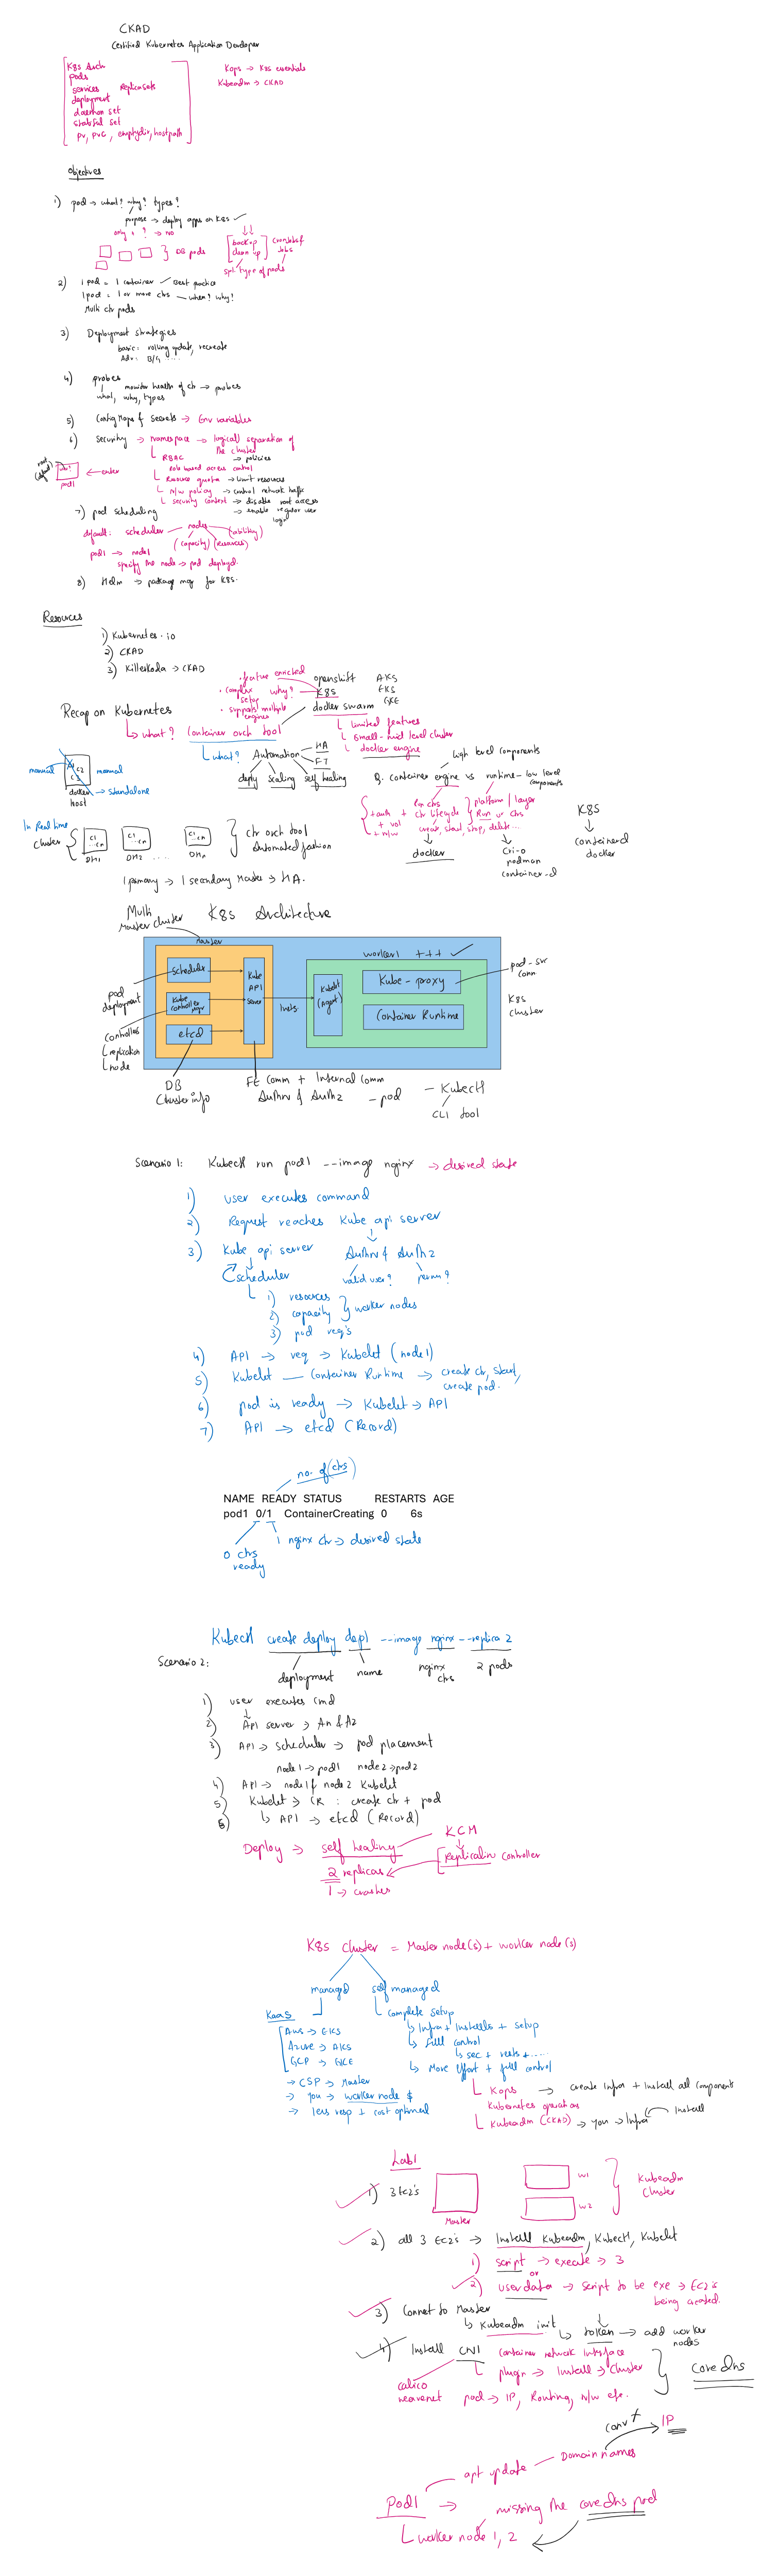 CKAD
Certified Kubernetes Application Developer
K8s Arch
pods
services replicasets
deployment
daemon set
stateful set
pv, pvc, emptydir, hostpath
Kops → K8s essentials
Kubeadm → CKAD
Objectives
1) pod → what? why? types?
purpose → deploy apps on K8s
only 1 ? → NO
DB pods
backup
clean up
CronJobs &
Jobs
spl. type of pods
2) 1 pod = 1 container - Best practice
1 pod = 1 or more ctrs - when? why?
Multi ctr pods
3) Deployment strategies
basic: rolling update, recreate
Adv: B/G ....
4) probes
monitor health of ctr → probes
what, why, types
5) Config Maps & Secrets → Env variables
6) Security → namespace → logical separation of
the cluster
RBAC → policies
Role based access control
Resource quota → limit resources
n/w policy → control network traffic
security context → disable root access
→ enable regular user
login
root
(default)
pod1
← enter
7) pod scheduling
default: scheduler - nodes (ability)
(capacity) (resources)
pod1 → node1
specify the node → pod deployed.
8) Helm → package mgr for K8s.
Resources
1) Kubernetes.io
2) CKAD
3) Killerkoda → CKAD
Recap on Kubernetes
what? Container orch tool
. feature enriched
. complex setup
. supports multiple engines
why?
openshift
K8S
docker swarm
AKS
EKS
GKE
limited features
small-mid level cluster
docker engine
what? Automation
HA
FT
deploy scaling self healing
manual
C1 C2
C3
manual
docker
host
→ standalone
Q. container engine vs runtime - low level
components
high level components
+ auth
+ vol
+ n/w
+ ctr lifecycle
create, start, stop, delete...
platform / layer
Run ur ctrs
docker
Cri-o
podman
container-d
K8S
containerd
docker
In Real time
Cluster
C1 ...Cn
C1 ...Cn
C1 ...Cn
DH1 DH2 .... DHn
ctr orch tool
Automated fashion
1 primary → 1 secondary Master → HA.
Multi
Master cluster
K8s Architecture
Master
worker1 +++
scheduler
Kube
controller
mgr
etcd
Kube
API
server
Kubelet
(Agent)
Kube - proxy
Container Runtime
pod
deployment
controller
replication
node
pod - svr
comm
K8s
cluster
DB
Cluster info
FE Comm + Internal comm
AuthN & AuthZ - pod
- Kubectl
CLI tool
Scenario 1: Kubectl run pod1 --image nginx → desired state
1) user executes command
2) Request reaches Kube api server
3) Kube api server AuthN & AuthZ
scheduler
valid user? perm?
1) resources
2) capacity
3) pod req's
worker nodes
4) API → req → Kubelet (node1)
5) Kubelet - Container Runtime → create ctr, start,
create pod.
6) pod is ready → Kubelet → API
7) API → etcd (Record)
no. of (ctrs)
NAME READY STATUS RESTARTS AGE
pod1 0/1 ContainerCreating 0 6s
0 ctrs
ready
1 nginx ctr → desired state
Kubectl create deploy dep1 --image nginx --replica 2
Scenario 2:
deployment name nginx
ctrs
2 pods
1) user executes cmd
2) API server → AN & AZ
3) API → scheduler → pod placement
node1 → pod1 node2 → pod2
4) API → node1 & node2 Kubelet
5) Kubelet → CR : create ctr + pod
6) API → etcd (Record)
Deploy → self healing
KCM
Replication controller
2 replicas
1 → crashes
K8s cluster = Master node(s) + worker node(s)
managed
self managed
KaaS
Aws → EKS
Azure → AKS
GCP → GKE
→ CSP → Master
→ you → worker node $
→ less resp + cost optimized
complete setup
Infra + Installs + setup
Full control
sec + rests + ....
More Effort + full control
Kops → create Infra + Install all components
Kubernetes operations
Kubeadm (CKAD) → you → Infra
Install
Lab1
1) 3 Ec2's
Master
W1
W2
Kubeadm
Cluster
2) all 3 Ec2's → Install Kubeadm, Kubectl, Kubelet
1) script → execute → 3
or
2) userdata → script to be exe → Ec2's
being created.
3) Connect to Master
Kubeadm init
token → add worker
nodes
4) Install CNI
container network Interface
plugin → Install → Cluster
calico
weavenet
pod → IP, Routing, n/w etc.
core dns
conv
IP
apt update - Domain names
Pod1 → missing the coredns pod
worker node 1, 2